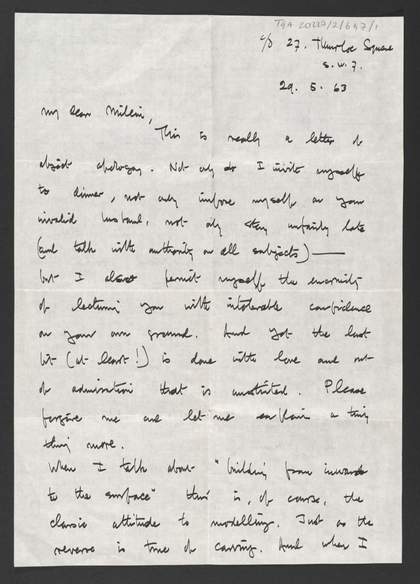 TGA 20222/2/6/47/1
c/o 27. Thurloe Square
S.W.7.
29. 5. 63
My dear Milein,
This is really a letter of
abject apology. Not only do I invite myself
to dinner, not only impose myself on your
invalid husband, not only stay unfairly late
(and talk with authority on all subjects) —
but I also permit myself the enormity
of lecturing you with intolerable confidence
on your own ground. And yet the last
bit (at least!) is done with love and out
of admiration that is unstinted. Please
forgive me and let me explain a tiny
thing more.
When I talk about "building from inwards
to the surface" this is, of course, the
classic attitude to modelling. Just as the
reverse is true of carving. And when I